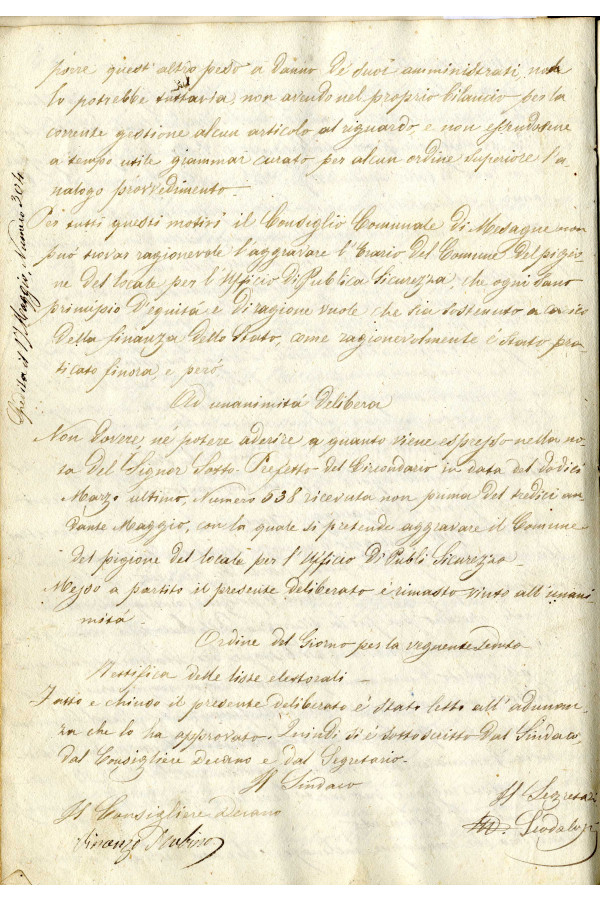 porre quest'altro peso a danno de' suoi amministrati, non
lo potrebbe tuttavia, non avendo nel proprio bilancio per la
corrente gestione alcun articolo al riguardo, e non essendosene
a tempo utile giammai curato per alcun ordine superiore l'a-
nalogo provvedimento.
Per tutti questi motivi il Consiglio Comunale di Mesagne non
può trovar ragionevole l'aggravare l'Erario del Comune del pigio-
ne del locale per l'Ufficio di Pubblica Sicurezza, che ogni sano
principio d'equità e di ragione vuole che sia sostenuto a carico
della finanza dello Stato, come ragionevolmente è stato pra-
ticato finora, e però
Ad unanimità delibera
Non dovere, né potere aderire, a quanto viene espresso nella no-
ta del Signor Sotto-Prefetto del Circondario in data del dodici
Marzo ultimo, Numero 638 ricevuta non prima del tredici an-
dante Maggio, con la quale si pretende aggravare il Comune
del pigione del locale per l'Ufficio di Publi Sicurezza.
Messo a partito il presente deliberato è rimasto vinto all'unani-
mità.
Ordine del Giorno per la vegnente seduta
Rettifica delle liste elettorali
Fatto e chiuso il presente deliberato è stato letto all'adunan-
za che lo ha approvato. Quindi si è sottoscritto dal Sindaco,
dal Consigliere Decano e dal Segretario.
Il Sindaco
Il Consigliere Decano
Vincenzo Rubino
Il Segretar
Spedita il 17 Maggio, Numero 304